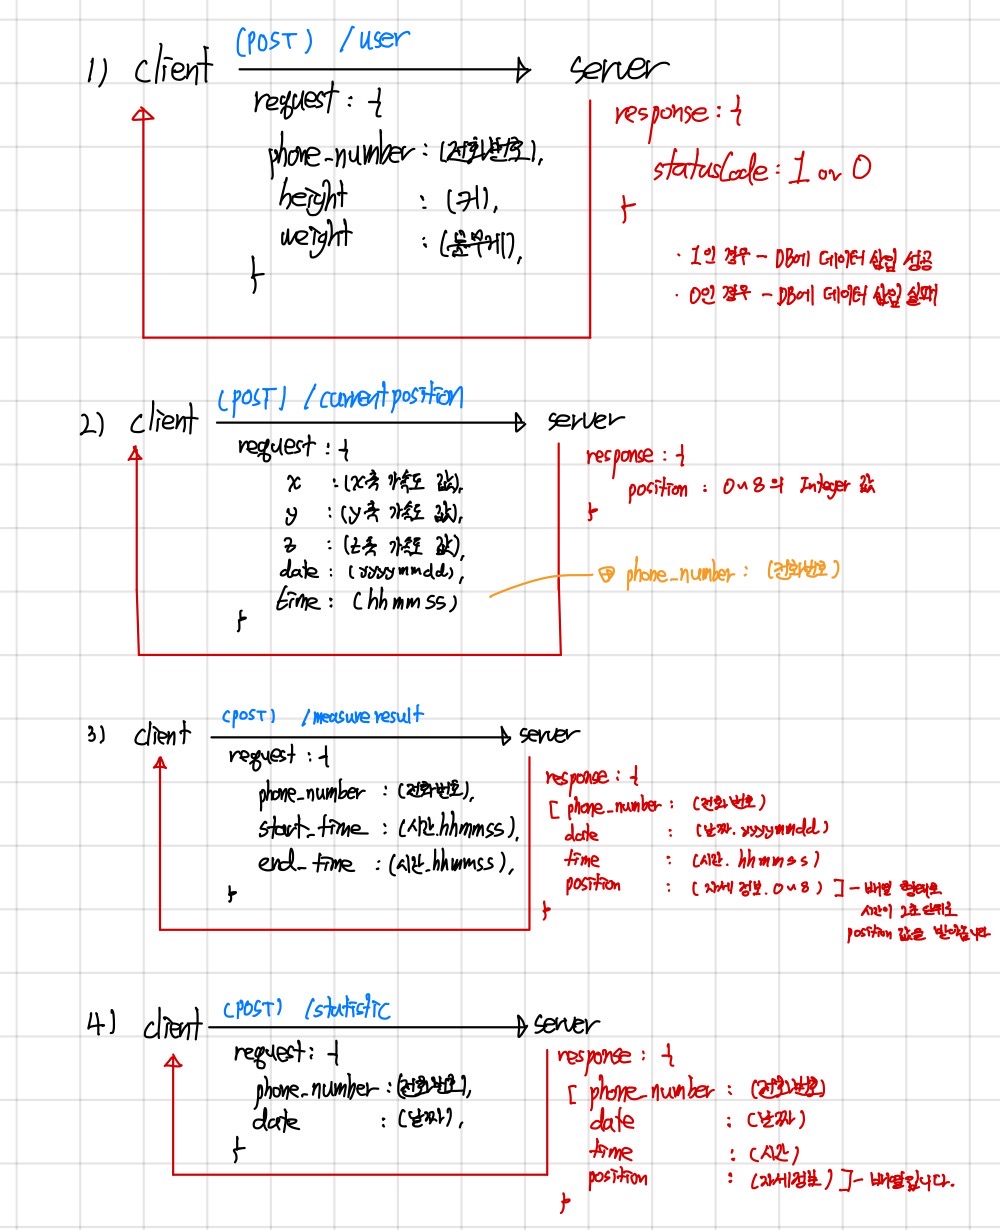 (POST) /user
1) client server
request : {
phone_number : (전화번호),
height : (키),
weight : (몸무게),
}
response : {
statusCode : 1 or 0
}
· 1인 경우 - DB에 데이터 삽입 성공
· 0인 경우 - DB에 데이터 삽입 실패
(POST) /currentposition
2) client server
request : {
x : (x축 가속도 값),
y : (y축 가속도 값),
z : (z축 가속도 값),
date : (yyyymmdd),
time : (hhmmss)
}
response : {
position : 0~8의 Integer 값
}
phone_number : (전화번호)
(POST) /measureresult
3) client server
request : {
phone_number : (전화번호),
start_time : (시간.hhmmss),
end_time : (시간.hhmmss),
}
response : {
[ phone_number : (전화번호)
date : (날짜.yyyymmdd)
time : (시간.hhmmss)
position : (자세 정보.0~8) ] - 배열 형태로
시간이 2초 단위로
position 값을 받아옵니다
}
(POST) /statistic
4) client server
request : {
phone_number : (전화번호),
date : (날짜),
}
response : {
[ phone_number : (전화번호)
date : (날짜)
time : (시간)
position : (자세정보) ] - 배열입니다.
}